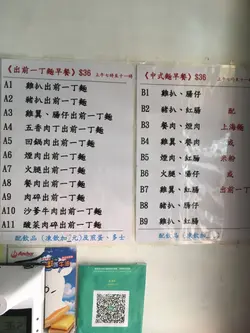 《出前一丁麵早餐》$36 上午七時至十一時
A1 雞扒出前一丁麵
A2 豬扒出前一丁麵
A3 雞翼、腸仔出前一丁麵
A4 五香肉丁出前一丁麵
A5 回鍋肉出前一丁麵
A6 煙肉出前一丁麵
A7 火腿出前一丁麵
A8 餐肉出前一丁麵
A9 肉碎出前一丁麵
A10 沙爹牛肉出前一丁麵
A11 酸菜肉碎出前一丁麵
配飲品 (凍飲加 元)及煎蛋、多士
《中式麵早餐》$36 上午七時
B1 雞扒、腸仔
B2 豬扒、紅腸 配
B3 餐肉、煙肉 上海麵
B4 雞翼、餐肉 或
B5 雞翼、煙肉 米粉
B6 火腿、腸仔 或
B7 雞翼、紅腸 出前一丁
B8 雞扒、紅腸
B9 雞翼、紅腸
配飲品(凍飲加